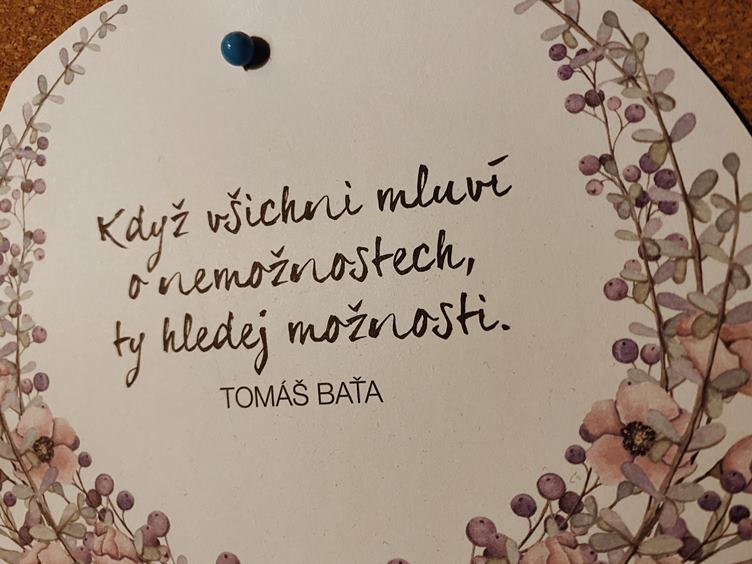 Když všichni mluví
o nemožnostech,
ty hledej možnosti.
TOMÁŠ BAŤA